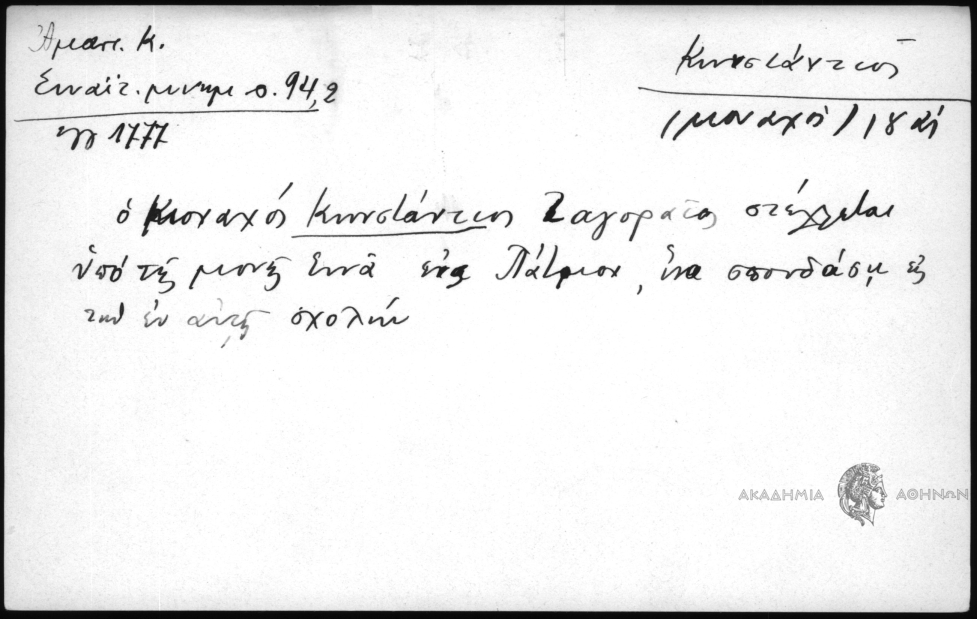 Ἄμαντ. Κ.
Σιναϊτ. μνημ σ. 94,2
ἐγγ 1777
Κωνστάντιος
(μοναχός) 18 αἰ
ὁ μοναχός Κωνστάντιος Ζαγοραῖος στέλλεται
ὑπό τῆς μονῆς Σινᾶ εἰς Πάτμον, ἵνα σπουδάσῃ εἰς
τήν ἐν αὐτῇ σχολήν
ΑΚΑΔΗΜΙΑ ΑΘΗΝΩΝ